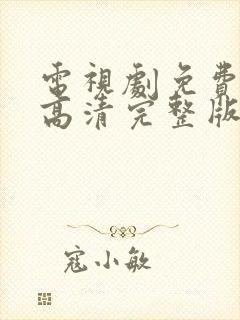 電視劇免費
高清完整版
寇小敏